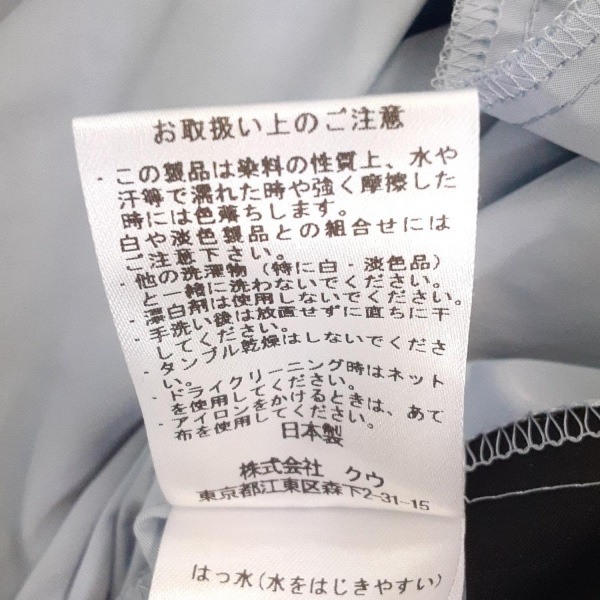 お取扱い上のご注意
・この製品は染料の性質上、水や
汗等で濡れた時や強く摩擦した
時には色落ちします。
白や淡色製品との組合せには
ご注意下さい。
・他の洗濯物（特に白・淡色品）
と一緒に洗わないでください。
・漂白剤は使用しないでください。
・手洗い後は放置せずに直ちに干
してください。
・タンブル乾燥はしないでくださ
い。
・ドライクリーニング時はネット
を使用してください。
・アイロンをかけるときは、あて
布を使用してください。
日本製
株式会社 クウ
東京都江東区森下2-31-15
はっ水(水をはじきやすい)